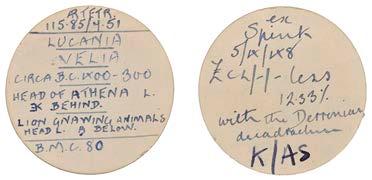 115.85/7.51
LUCANIA
VELIA
CIRCA B.C. 400-300
HEAD OF ATHENA L.
BEHIND.
LION GNAWING ANIMALS
HEAD L. BELOW.
B.M.C. 80
ex
Spink
5/IX/IX8
£CL/-/- less
12.33%
with the Derronian
decadrachm
K/AS